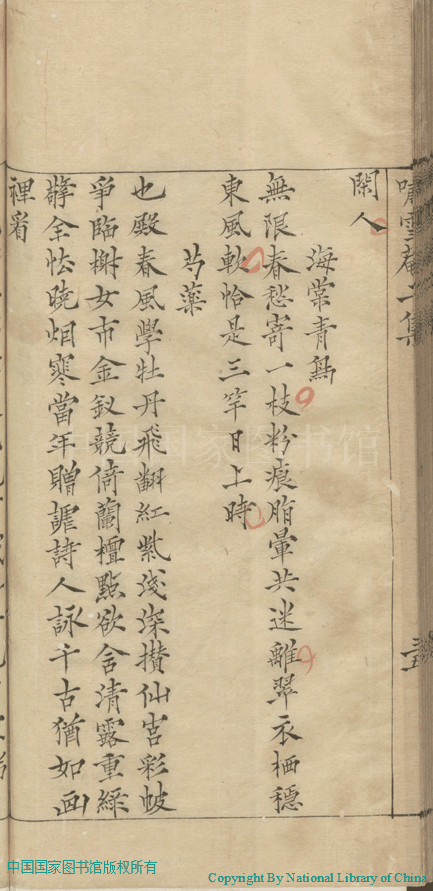 嘯雪菴二集
閑人
海棠青鳥
無限春愁寄一枝粉痕脂暈共迷離翠衣栖穩
東風軟恰是三竿日上時
芍藥
也殿春風學牡丹飛翻紅紫淺深攢仙宮彩帔
爭臨榭女市金釵競倚蘭檀點欲含清露重綵
擎全怯曉烟寒當年贈謔詩人詠千古猶如画
裡看
中国国家图书馆
中国国家图书馆版权所有
Copyright By National Library of China